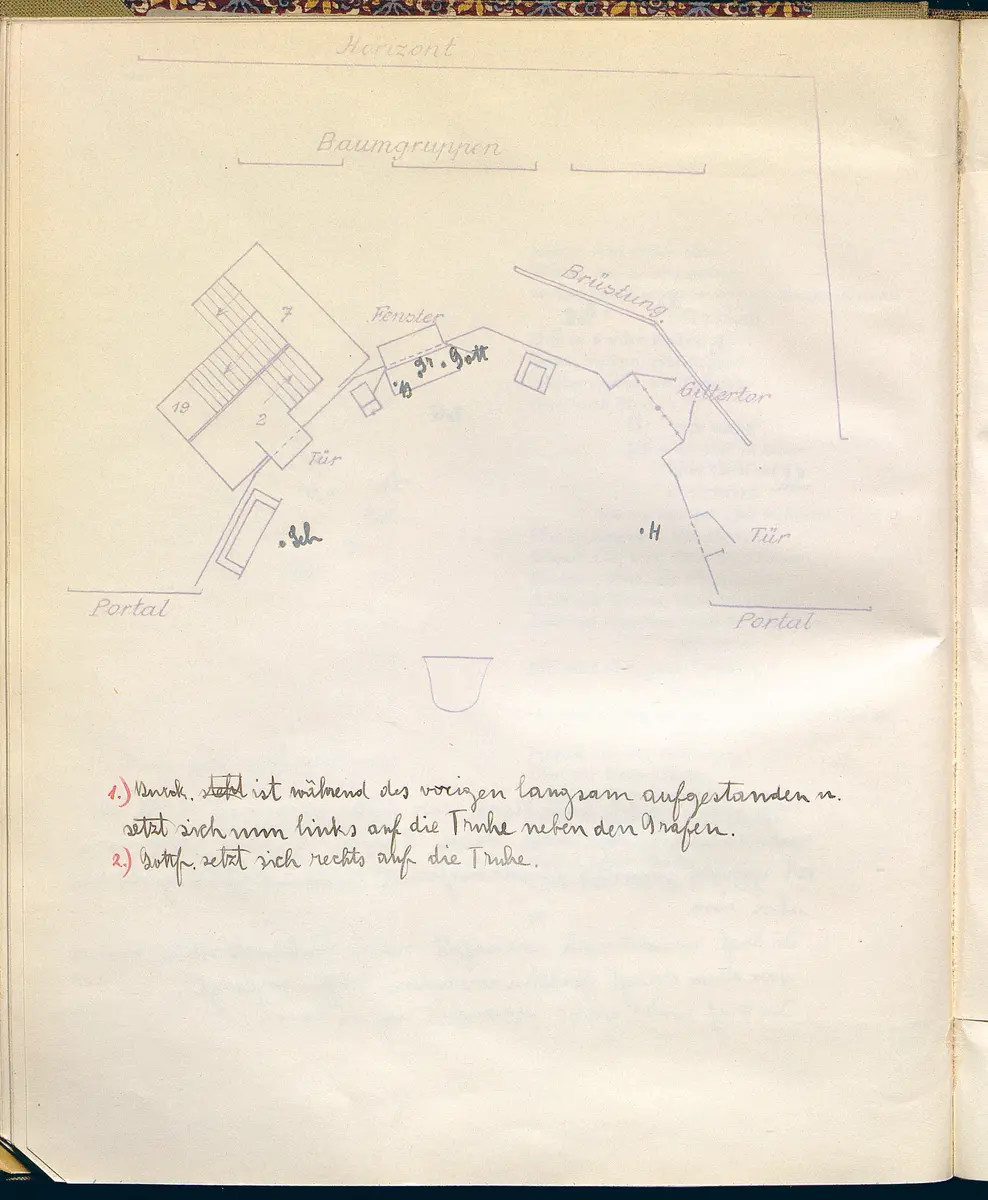 Horizont
Baumgruppen
Brüstung.
Fenster
7
Gr. Gott
B
19
2
Gittertor
Tür
Seb
H
Tür
Portal
Portal
1.) Burck. steht ist während des vorigen langsam aufgestanden u.
setzt sich nun links auf die Truhe neben den Grafen.
2.) Gottf. setzt sich rechts auf die Truhe.